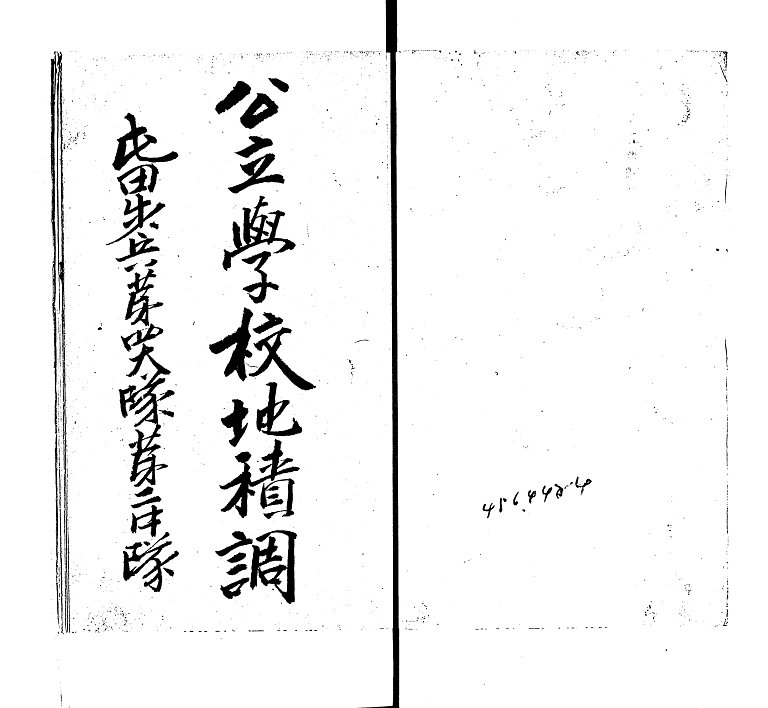 公立學校地積調
屯田歩兵第四大隊第二中隊